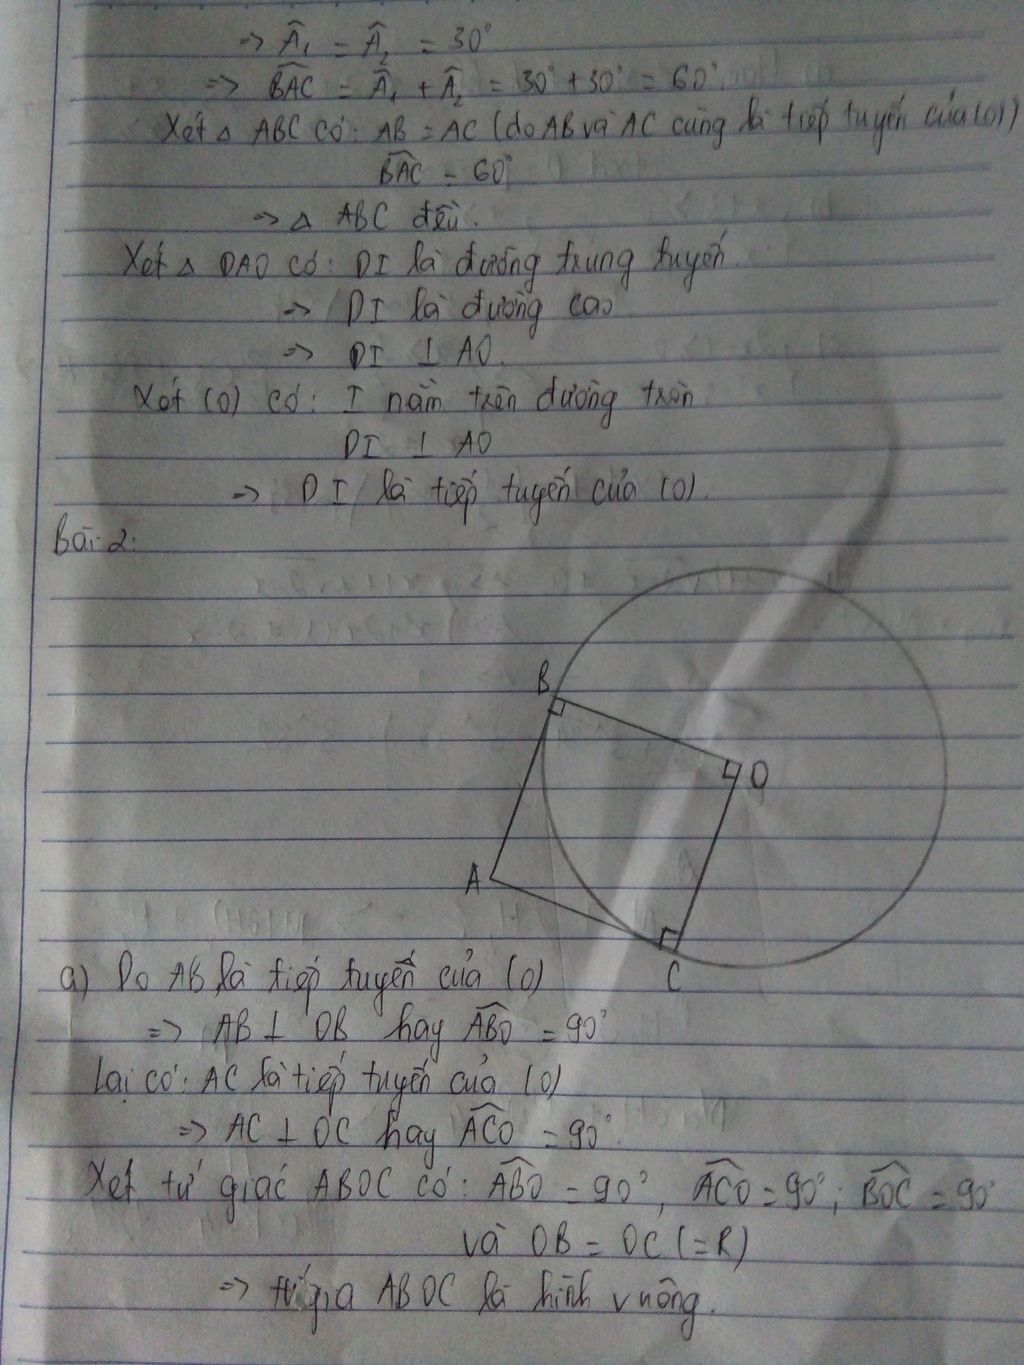 => Â₁ = Â₂ = 30°
=> BAC = Â₁ + Â₂ = 30° + 30° = 60°
Xét Δ ABC có: AB = AC (do AB và AC cùng là tiếp tuyến của (O))
BAC = 60°
=> Δ ABC đều.
Xét Δ DAO có: DI là đường trung tuyến
=> DI là đường cao
=> DI ⊥ AO.
Xét (O) có: I nằm trên đường tròn
DI ⊥ AO
=> DI là tiếp tuyến của (O).
Bài 2:
B
O
A
C
a) Do AB là tiếp tuyến của (O)
=> AB ⊥ OB hay ABO = 90°
Lại có: AC là tiếp tuyến của (O)
=> AC ⊥ OC hay ACO = 90°.
Xét tứ giác ABOC có: ABO = 90°, ACO = 90°; BOC = 90°
và OB = OC (=R)
=> tứ gia ABOC là hình vuông.